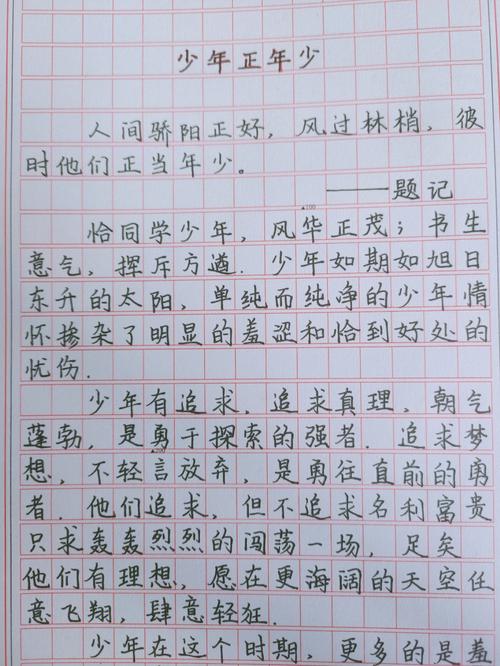 少年正年少
人间骄阳正好，风过林梢，彼
时他们正当年少。
——题记
▲100
恰同学少年，风华正茂；书生
意气，挥斥方遒．少年如期如旭日
东升的太阳，单纯而纯净的少年情
怀掺杂了明显的羞涩和恰到好处的
忧伤．
少年有追求，追求真理，朝气
蓬勃，是勇于探索的强者．追求梦
▲200
想，不轻言放弃，是勇往直前的勇
者．他们追求，但不追求名利富贵
只求轰轰烈烈的闯荡一场，足矣
他们有理想，愿在更海阔的天空任
意飞翔，肆意轻狂．
少年在这个时期，更多的是羞